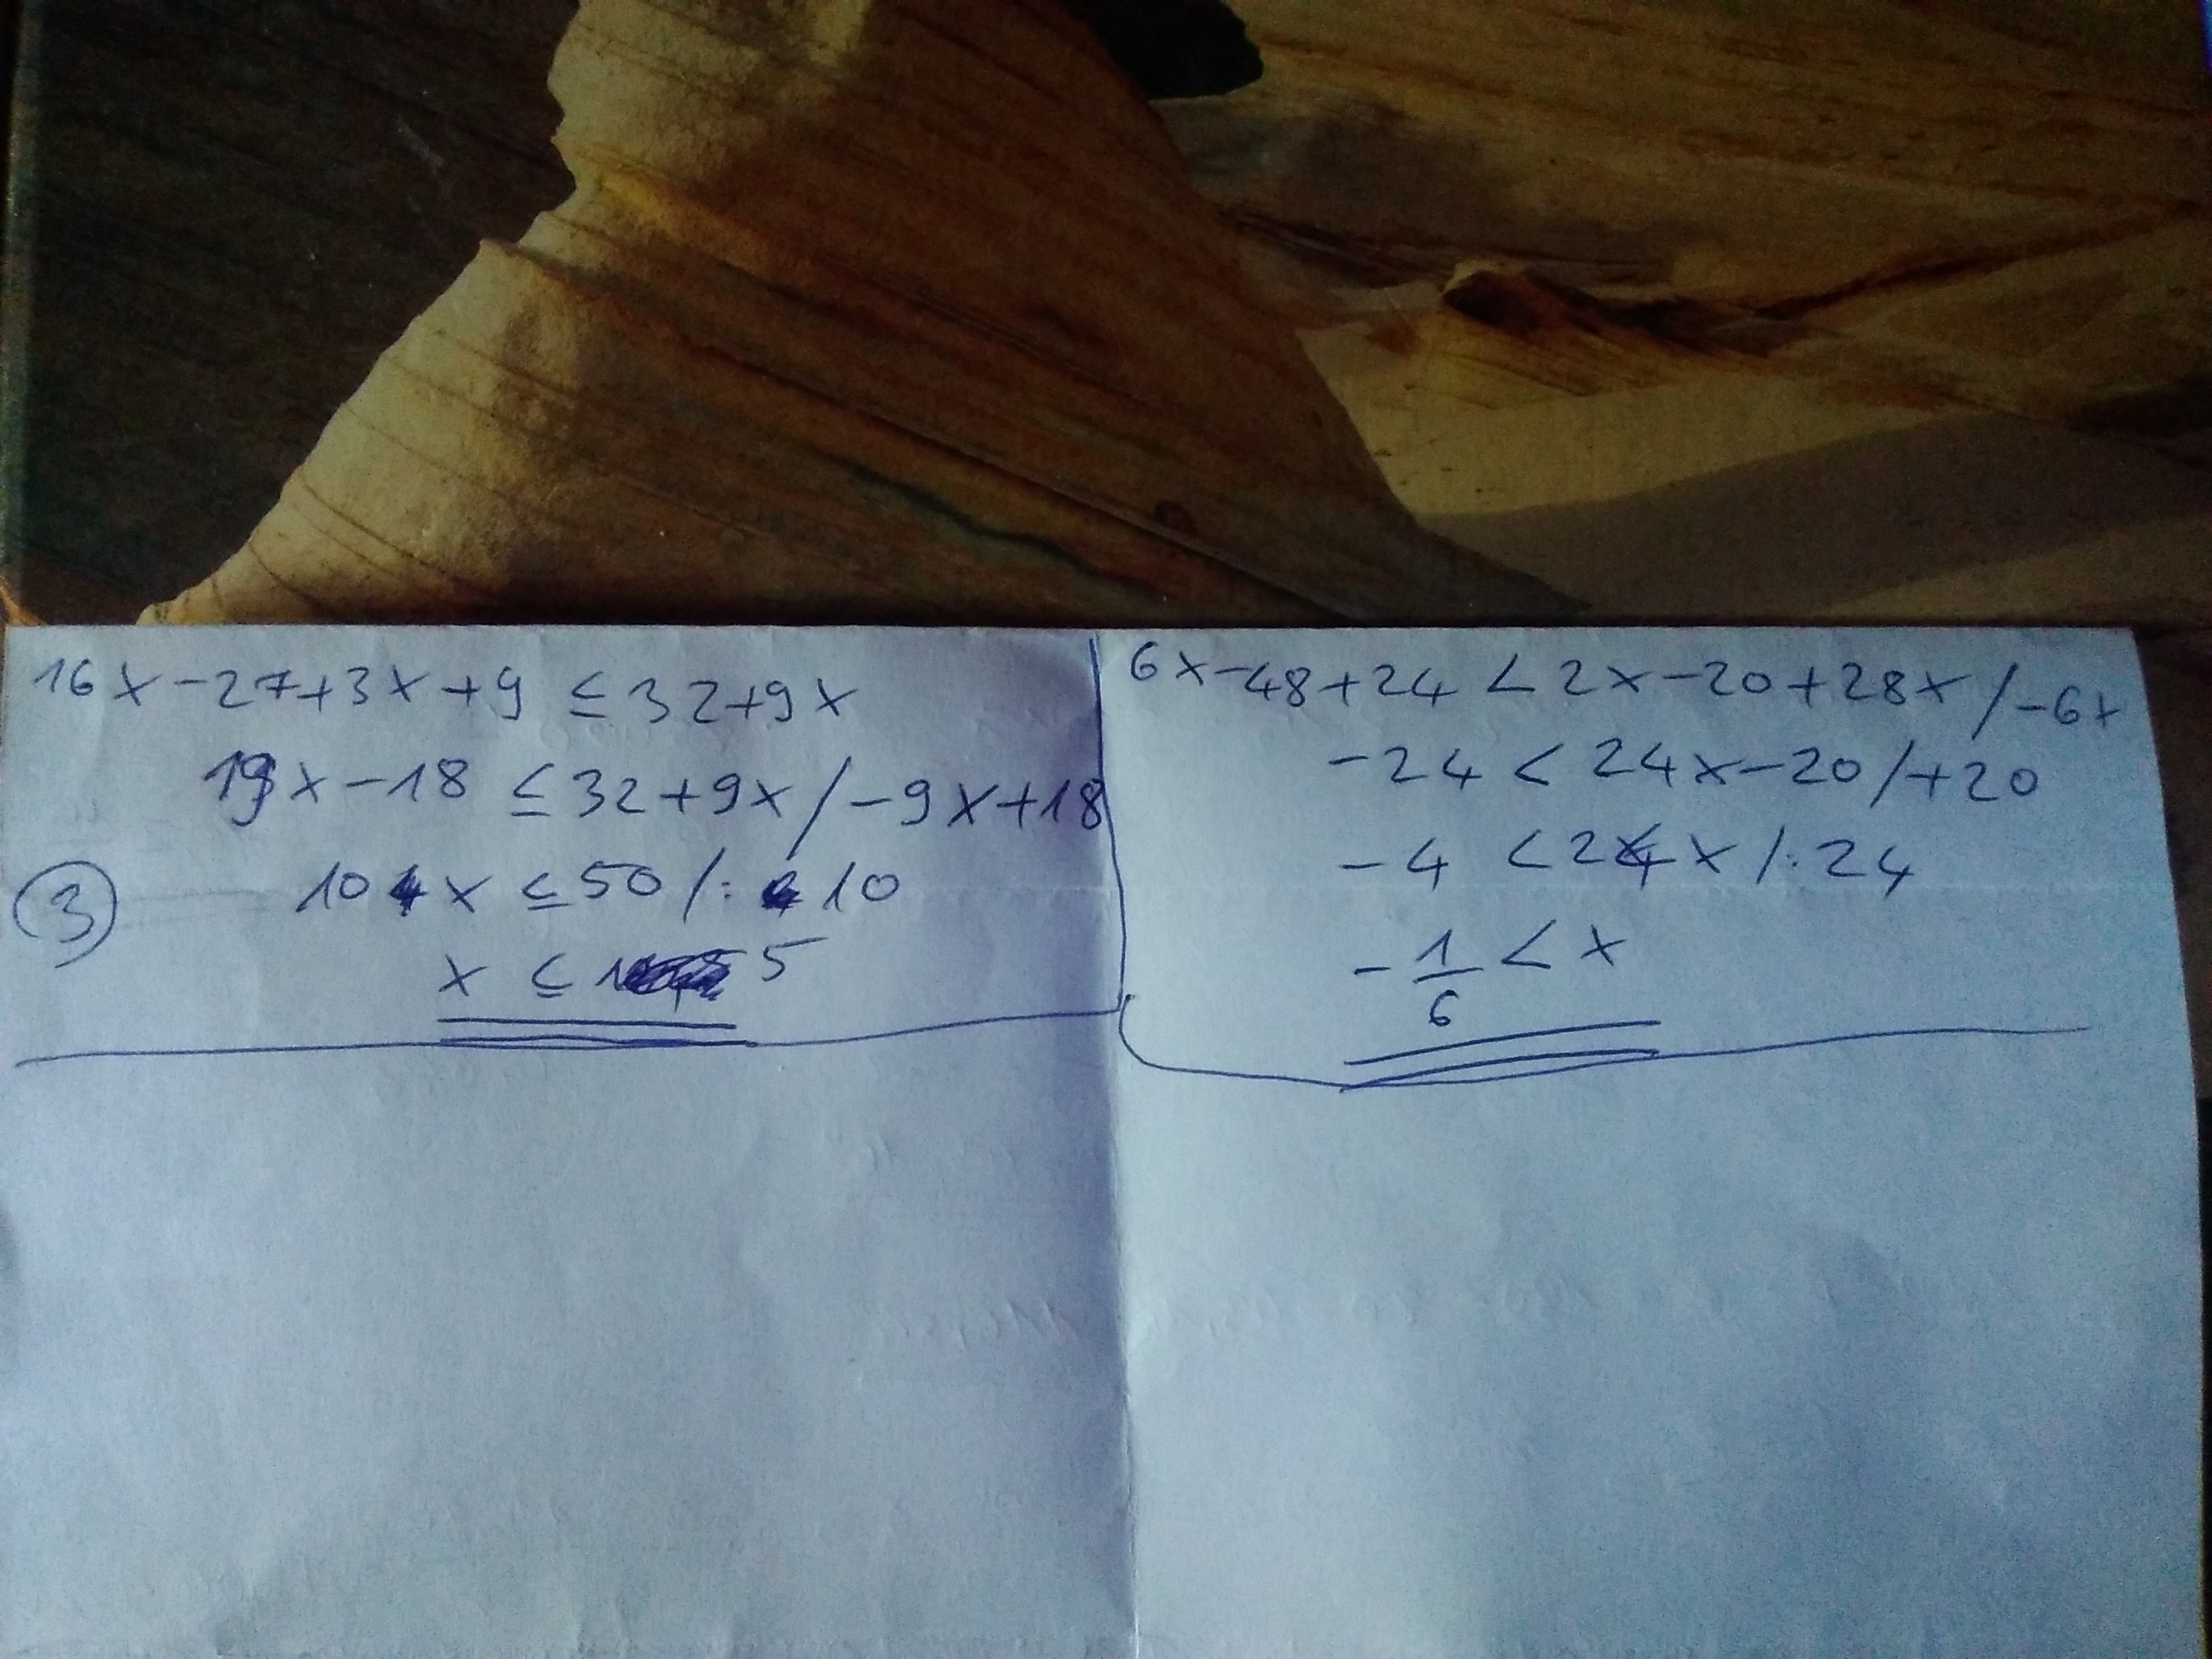 16x-27+3x+9 ≤ 32+9x
19x-18 ≤ 32+9x /-9x+18
③
10x ≤ 50 /: 10
x ≤ 5
6x-48+24 < 2x-20+28x /-6x
-24 < 24x-20 /+20
-4 < 24x /: 24
-1/6 < x